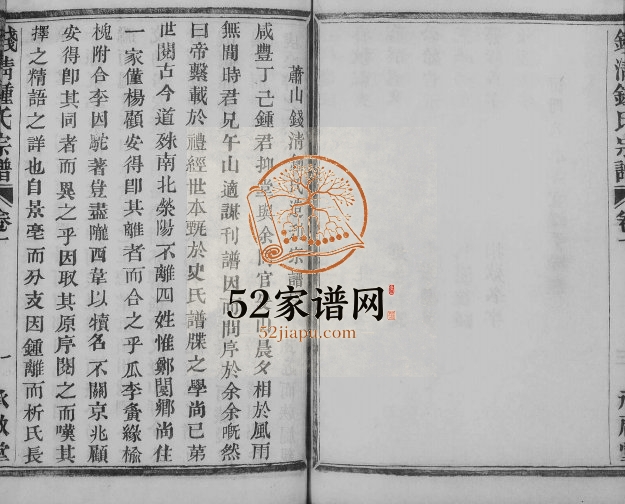 蕭山錢清鍾氏宗譜
咸豐丁巳鍾君與余官山晨夕相於風雨
無間時君兄午山適謀刊譜因而問序於余余慨然
曰帝繫載於禮經世本甄於史氏譜牒之學尚已第
世閱古今道殊南北滎陽不離四姓惟鄭閿鄉尚住
一家僅楊顧安得卽其離者而合之乎瓜李夤緣榆
槐附合李因駝著豈盡隴西草以犢名不關京兆顧
安得卽其同者而異之乎因取其原序閱之而嘆其
擇之精語之詳也自景亳而分支因鍾離而析氏長
錢清鍾氏宗譜
卷一
一
承啟堂
52家谱网
52jiapu.com